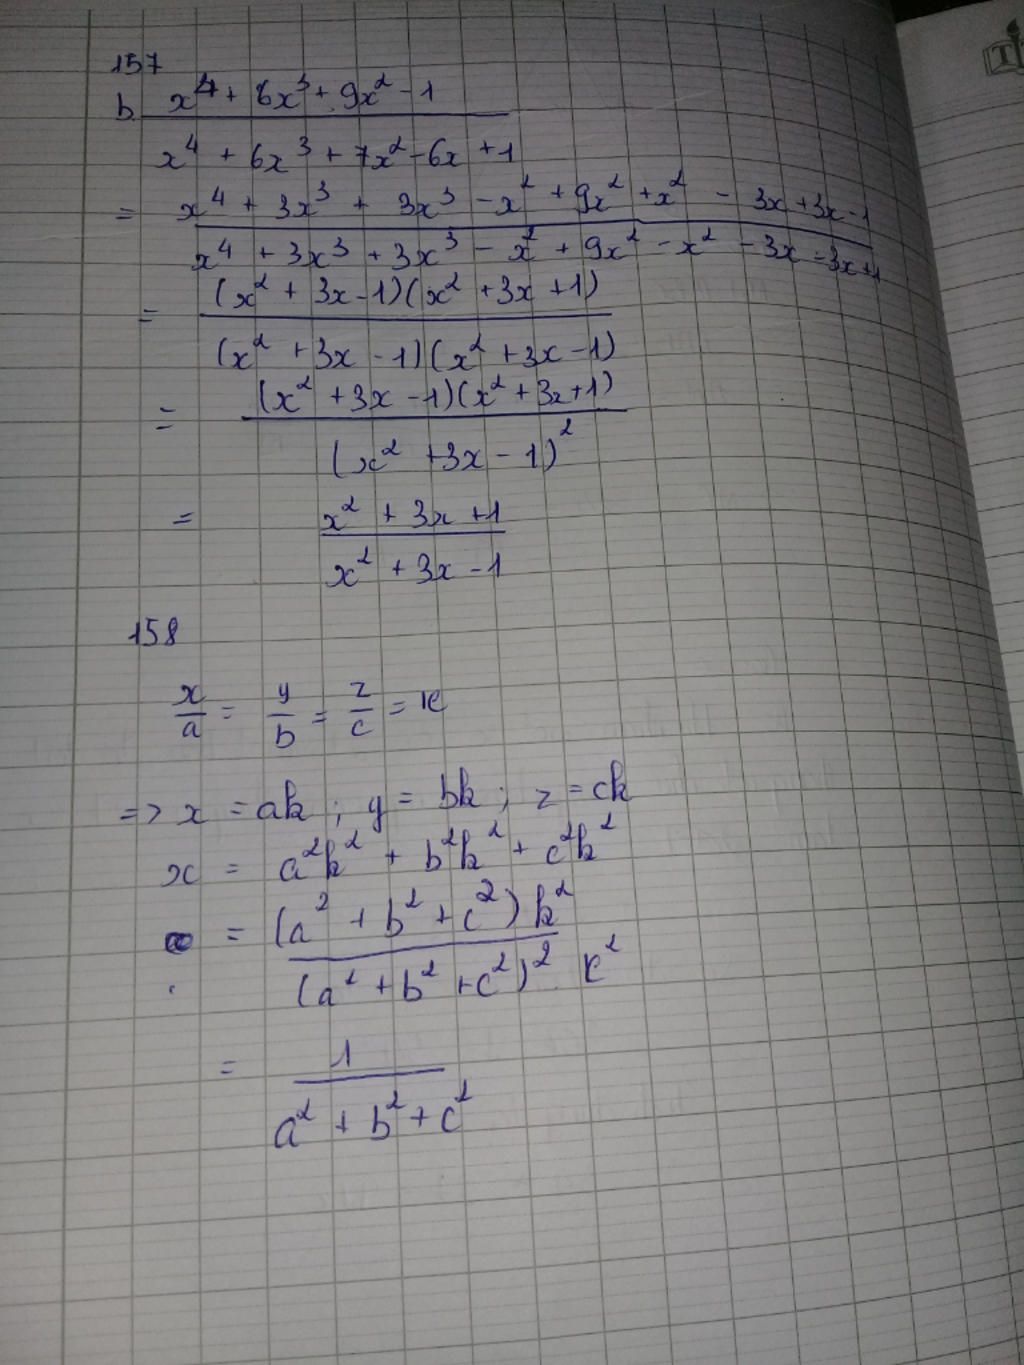 157
b. x⁴ + 6x³ + 9x² - 1
x⁴ + 6x³ + 7x² - 6x + 1
= x⁴ + 3x³ + 3x³ - x² + 9x² + x² - 3x + 3x - 1
x⁴ + 3x³ + 3x³ - x² + 9x² - x² - 3x - 3x + 1
= (x² + 3x - 1)(x² + 3x + 1)
(x² + 3x - 1)(x² + 3x - 1)
= (x² + 3x - 1)(x² + 3x + 1)
(x² + 3x - 1)²
= x² + 3x + 1
x² + 3x - 1
158
x/a = y/b = z/c = k
=> x = ak ; y = bk ; z = ck
x = a²k² + b²k² + c²k²
= (a² + b² + c²) k²
(a² + b² + c²)² k²
= 1
a² + b² + c²